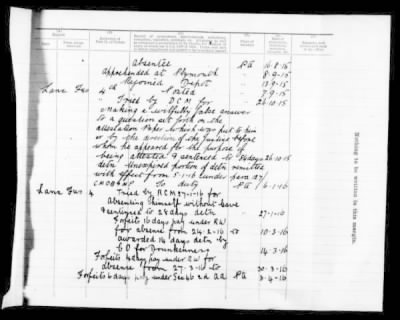 Absentee Pte 16.8.15
Apprehended at Plymouth " 8.9.15
Rejoined Depot " 13.9.15
Lanc Fus 4th Posted " 7.9.15
" Tried by DCM for " 26.10.15
making a wilfully false answer
to a question set forth on the
attestation Paper which was put to him
or by the direction of the Justice before
whom he appeared for the purpose of
being attested & sentenced to 84 days 26.10.15
detn Unexpired portion of detn remitted
with effect from 5.1.16 (under para
To duty Pte 6.1.16
Lanc Fus 4 Tried by RCM 27.1.16 for
absenting himself without leave
& sentenced to 28 days detn " 27.1.16
Forfeits 16 days pay under RW
for absence from 24.2.16 to 10.3.16
awarded 14 days detn by
CO for Drunkenness " 14.3.16
Forfeits 4 days pay under RW for
absence from 27.3.16 to 30.3.16
Forfeits 4 days pay under Sec 46 2d AA Pte 3.4.16
Nothing to be written in this margin.